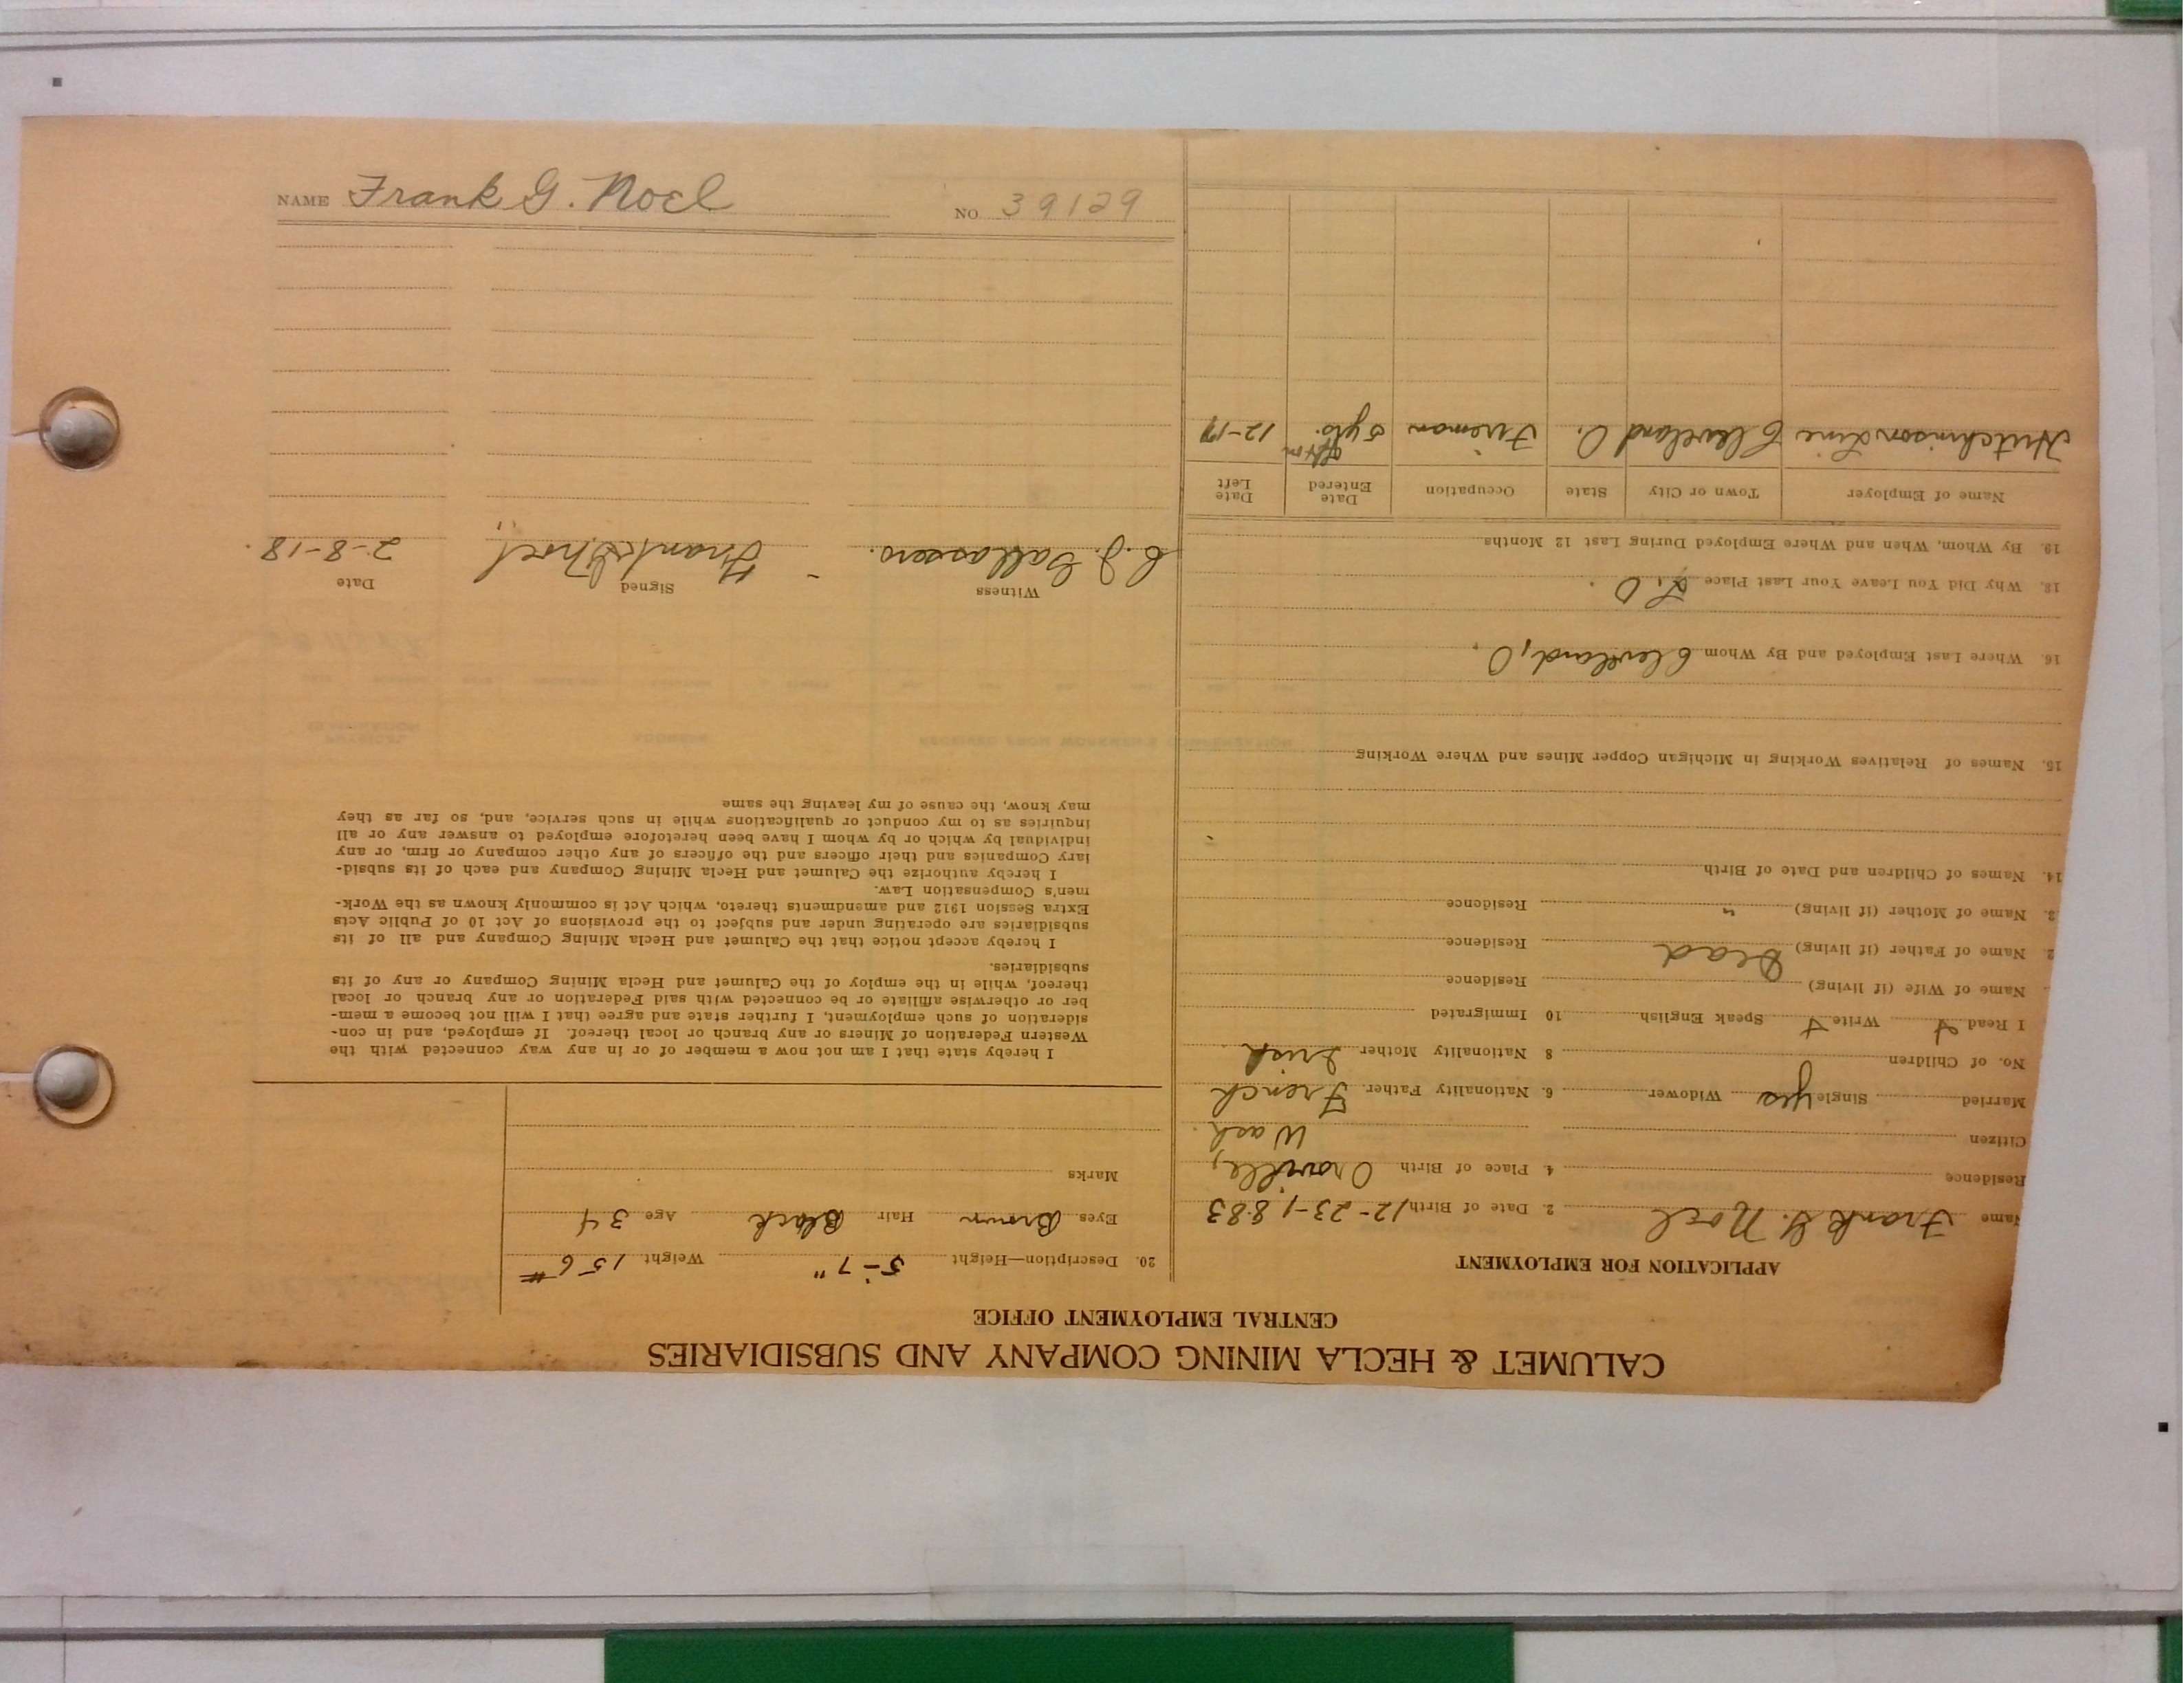 CALUMET & HECLA MINING COMPANY AND SUBSIDIARIES
CENTRAL EMPLOYMENT OFFICE
APPLICATION FOR EMPLOYMENT
Name Frank G. Noel 2. Date of Birth 12-23-1883
Residence 4. Place of Birth Oroville,
Citizen Wash.
Married Single yes Widower 6. Nationality Father French
No. of Children 8 Nationality Mother Irish
I Read Write Speak English 10 Immigrated
Name of Wife (if living) Residence
2. Name of Father (if living) Dead Residence
3. Name of Mother (if living) " Residence
14. Names of Children and Date of Birth
15. Names of Relatives Working in Michigan Copper Mines and Where Working
16. Where Last Employed and By Whom Cleveland, O.
18. Why Did You Leave Your Last Place
19. By Whom, When and Where Employed During Last 12 Months
Name of Employer Town or City State Occupation Date Entered Date Left
Hutchinson Line Cleveland O. Fireman 5 yrs. 12-17
20. Description—Height 5-7" Weight 156#
Eyes Brown Hair Black Age 34
Marks
I hereby state that I am not now a member of or in any way connected with the
Western Federation of Miners or any branch or local thereof. If employed, and in con-
sideration of such employment, I further state and agree that I will not become a mem-
ber or otherwise affiliate or be connected with said Federation or any branch or local
thereof, while in the employ of the Calumet and Hecla Mining Company or any of its
subsidiaries.
I hereby accept notice that the Calumet and Hecla Mining Company and all of its
subsidiaries are operating under and subject to the provisions of Act 10 of Public Acts
Extra Session 1912 and amendments thereto, which Act is commonly known as the Work-
men's Compensation Law.
I hereby authorize the Calumet and Hecla Mining Company and each of its subsid-
iary Companies and their officers and the officers of any other company or firm, or any
individual by which or by whom I have been heretofore employed to answer any or all
inquiries as to my conduct or qualifications while in such service, and, so far as they
may know, the cause of my leaving the same
Witness Signed Date
C. J. Frank G Noel 2-8-18.
NAME Frank G. Noel NO. 39129